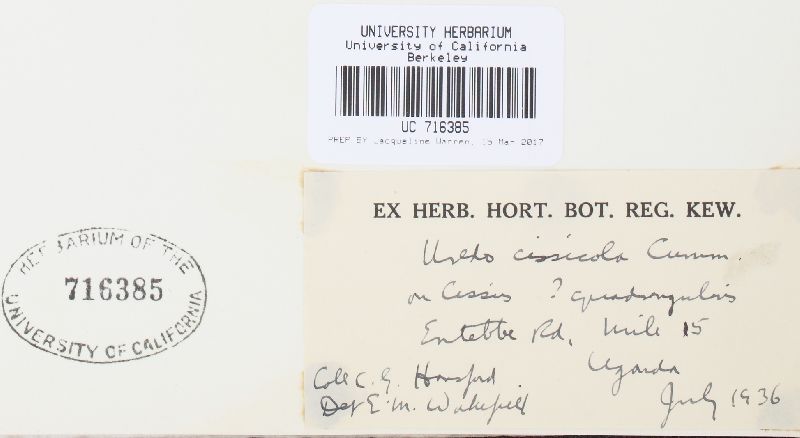 UNIVERSITY HERBARIUM
University of California
Berkeley
UC 716385
PREP BY Jacqueline Warren, 15 Mar 2017
EX HERB. HORT. BOT. REG. KEW.
Uredo cissicola Cumm.
on Cissus ? quadrangularis
Entebbe Rd, Mile 15
Uganda
Coll C. G. Hansford
Det E. M. Wakefield
July 1936
HERBARIUM OF THE
716385
UNIVERSITY OF CALIFORNIA